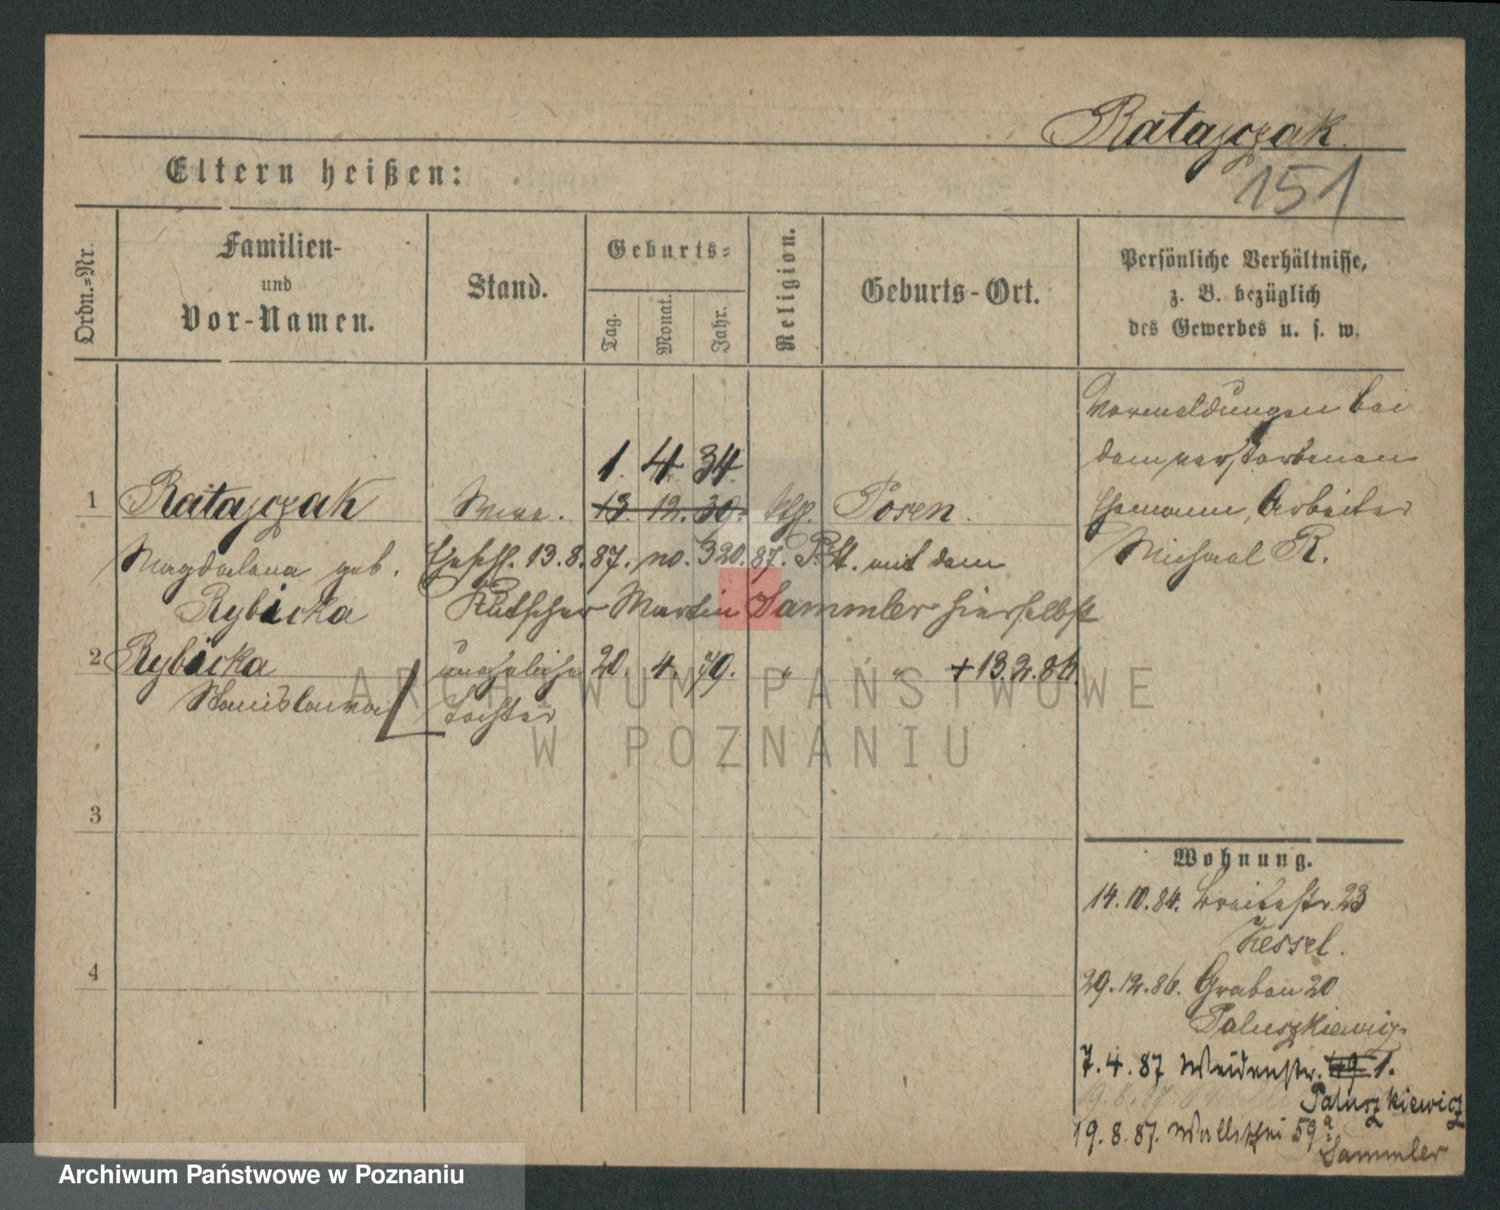 Ratajczak.
151
Eltern heißen:
Ordn.=Nr.
Familien-
und
Vor-Namen.
Stand.
Geburts=
Tag.
Monat.
Jahr.
Religion.
Geburts-Ort.
Persönliche Verhältnisse,
z. B. bezüglich
des Gewerbes u. s. w.
Vormeldungen bei
dem verstorbenen
Ehemann, Arbeiter
Michael R.
1. 4. 34.
1 Ratajczak Wwe. 13. 12. 39. kth. Posen.
Magdalena geb. Ehesch. 13.8.87. no. 320.87. P. St. mit dem
Rybicka Kutscher Martin Sammler hierselbst
2 Rybicka uneheliche 20. 4. 79. " " + 13.2.86.
Stanislawa Tochter
ARCHIWUM PAŃSTWOWE
W POZNANIU
3
4
Wohnung.
14.10.84. Breitestr. 23
Kessel.
29.12.86. Graben 20
Paluszkiewicz
7.4.87 Weidenstr. 49 1.
Paluszkiewicz
19.8.87. Wallischei 59a
Sammler
Archiwum Państwowe w Poznaniu